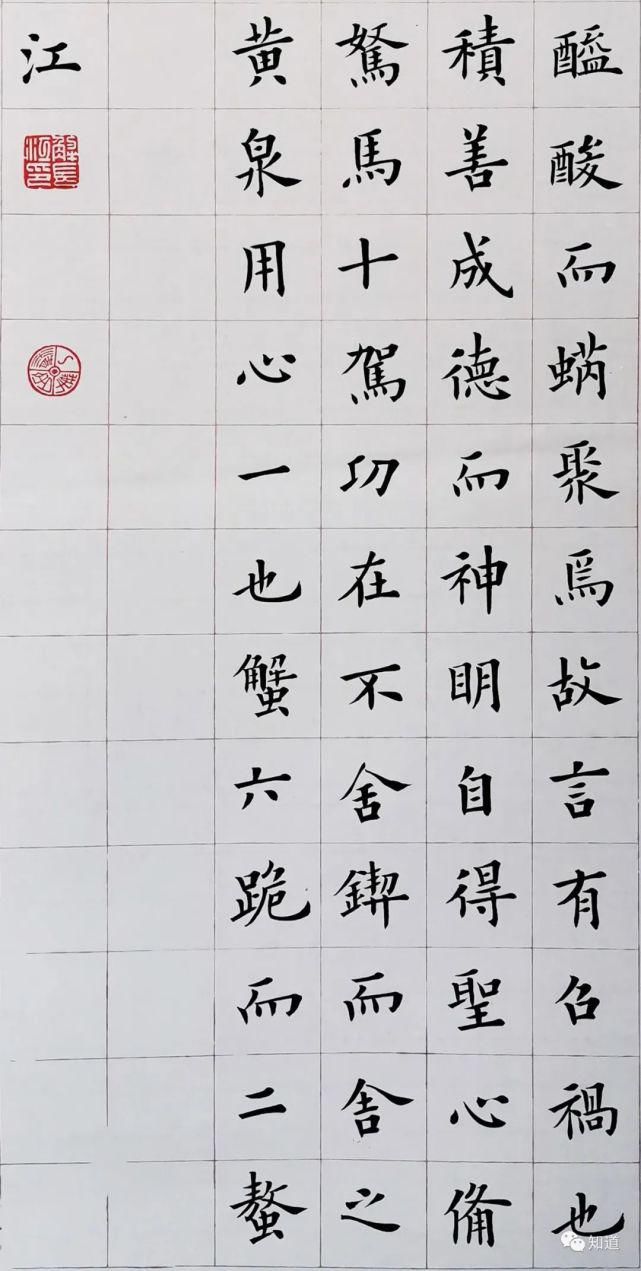 醯酸而蜹聚焉故言有召禍也
積善成德而神明自得聖心備
駑馬十駕功在不舍鍥而舍之
黄泉用心一也蟹六跪而二螯
江
知道